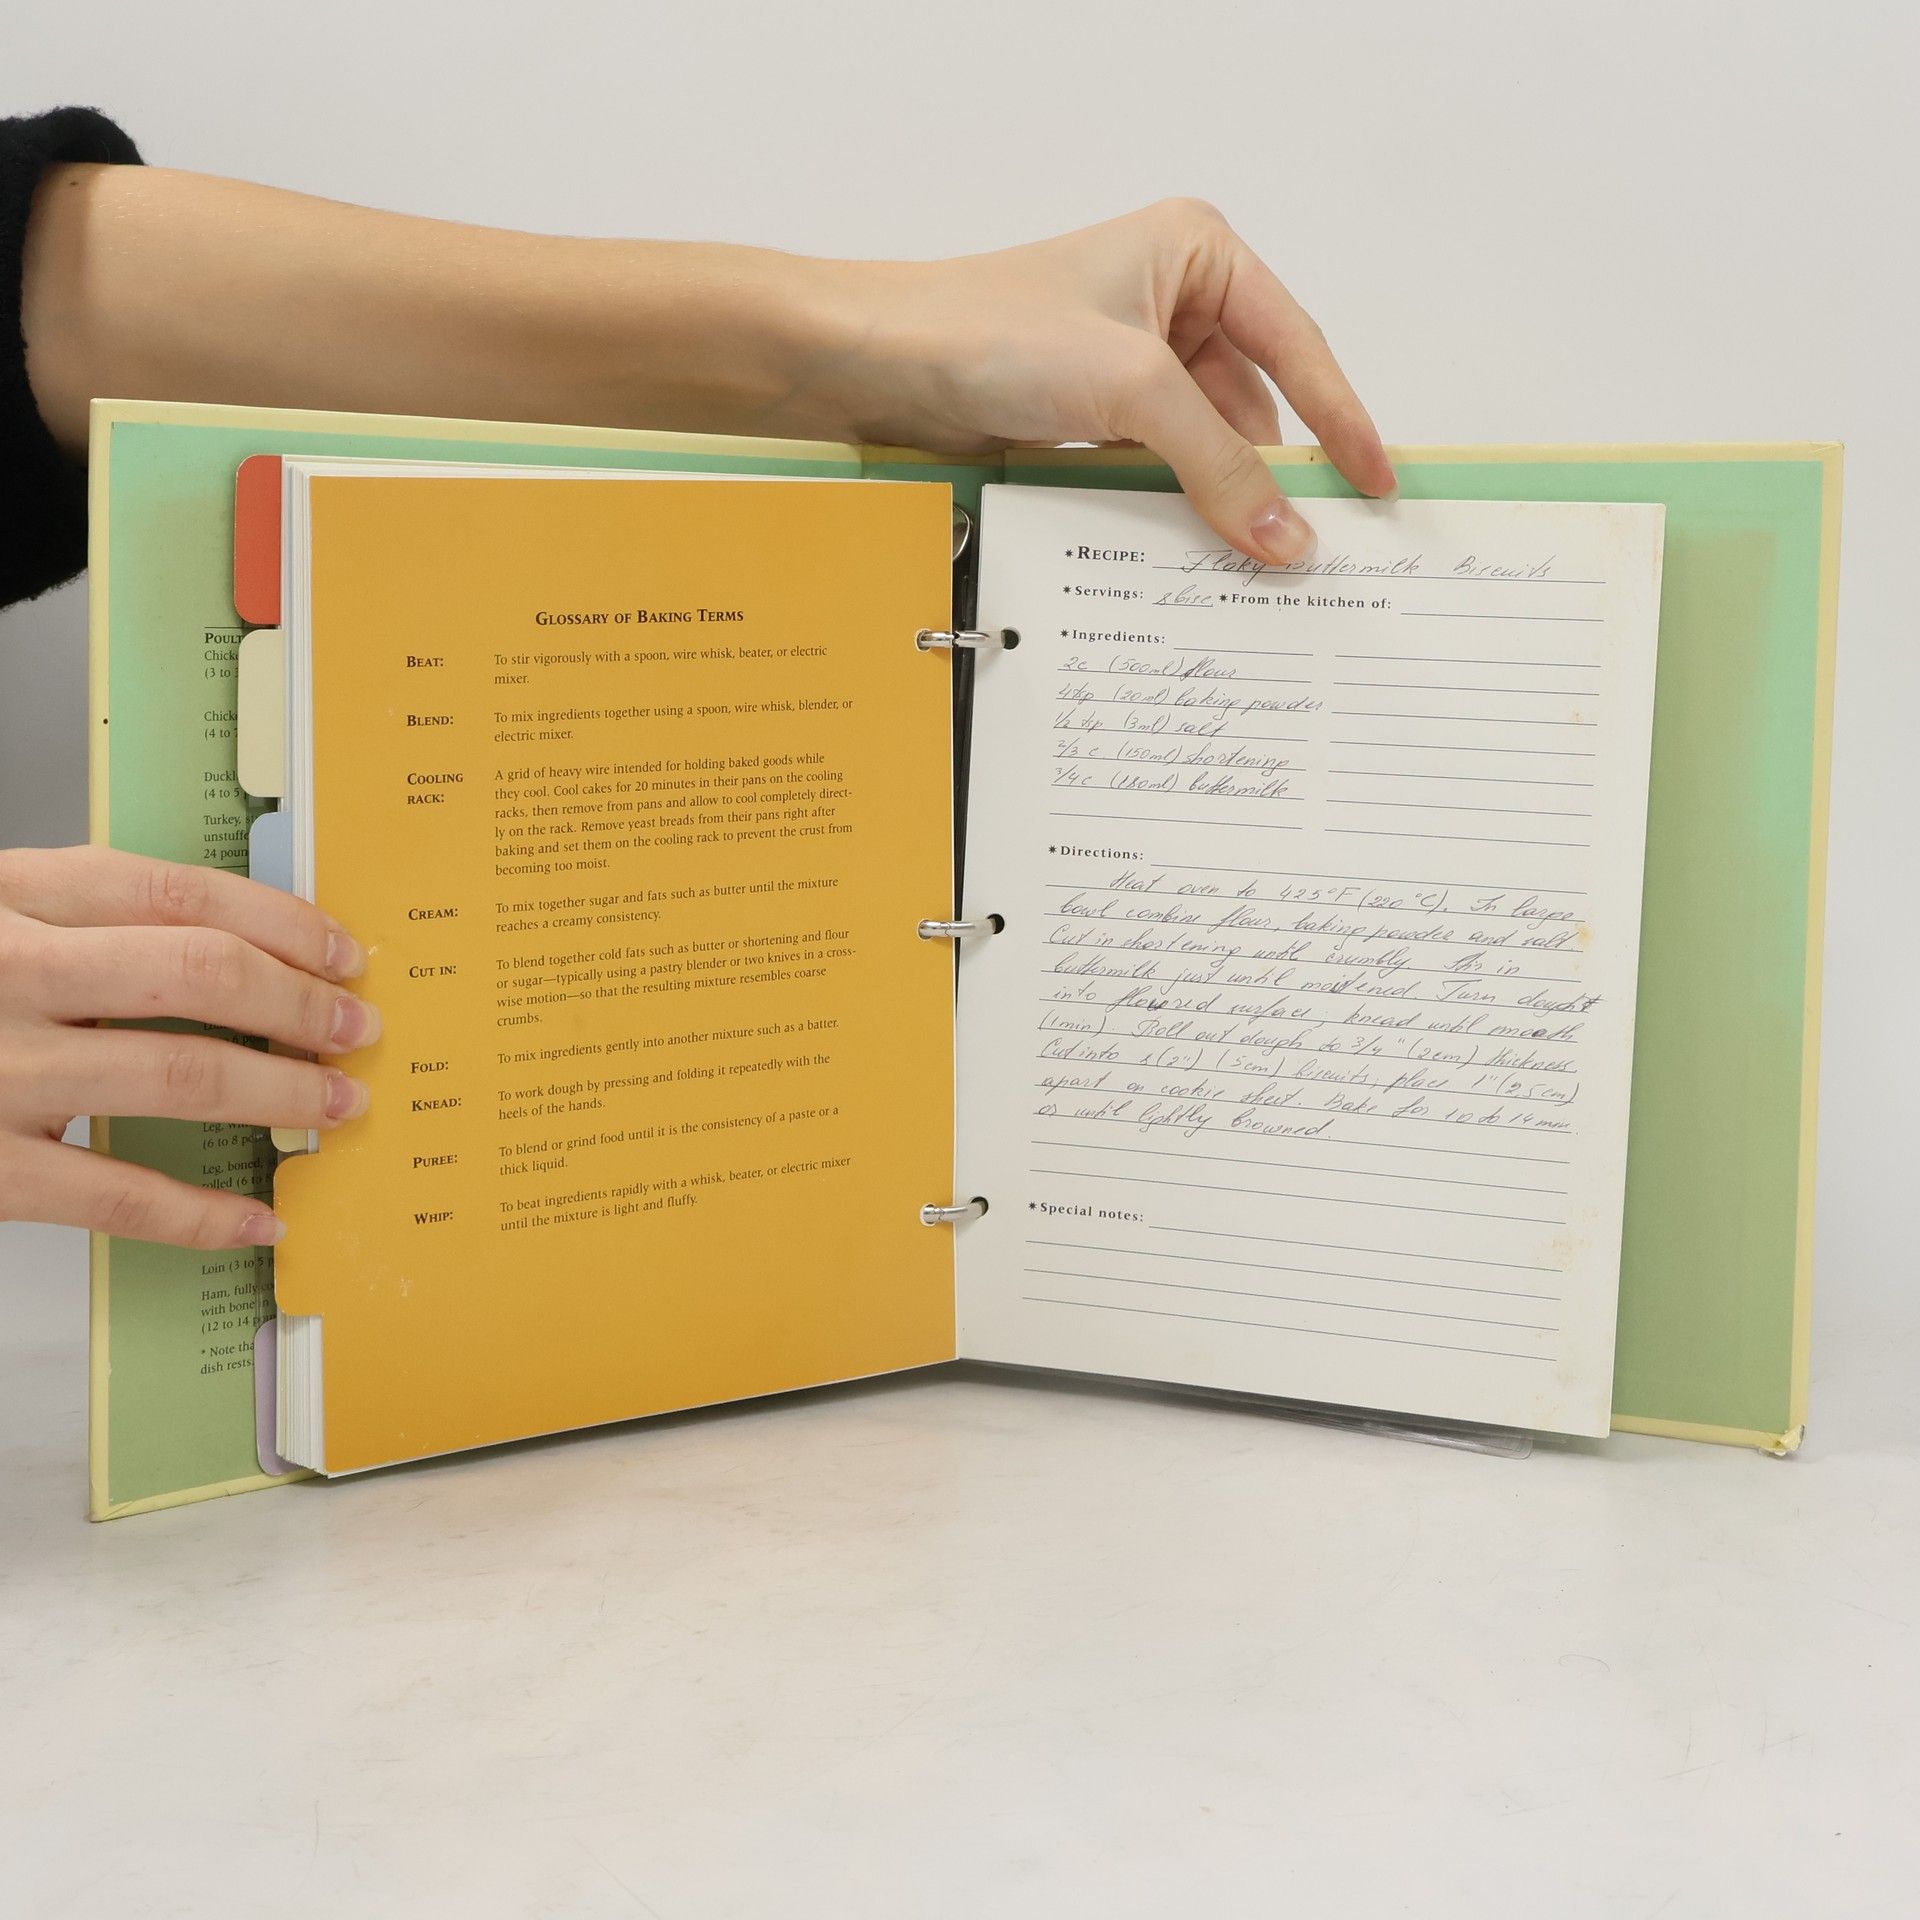 POULT
Chick
(3 to 3
Chick
(4 to 7
Duckl
(4 to 5
Turkey, st
unstuffe
24 poun
6 po
Leg, wi
(6 to 8 po
Leg, boned, s
rolled (6 to 8
Loin (3 to 5 p
Ham, fully co
with bone in
(12 to 14 p
* Note tha
dish rests.
GLOSSARY OF BAKING TERMS
BEAT: To stir vigorously with a spoon, wire whisk, beater, or electric
mixer.
BLEND: To mix ingredients together using a spoon, wire whisk, blender, or
electric mixer.
COOLING A grid of heavy wire intended for holding baked goods while
RACK: they cool. Cool cakes for 20 minutes in their pans on the cooling
racks, then remove from pans and allow to cool completely direct-
ly on the rack. Remove yeast breads from their pans right after
baking and set them on the cooling rack to prevent the crust from
becoming too moist.
CREAM: To mix together sugar and fats such as butter until the mixture
reaches a creamy consistency.
CUT IN: To blend together cold fats such as butter or shortening and flour
or sugar—typically using a pastry blender or two knives in a cross-
wise motion—so that the resulting mixture resembles coarse
crumbs.
FOLD: To mix ingredients gently into another mixture such as a batter.
KNEAD: To work dough by pressing and folding it repeatedly with the
heels of the hands.
PUREE: To blend or grind food until it is the consistency of a paste or a
thick liquid.
WHIP: To beat ingredients rapidly with a whisk, beater, or electric mixer
until the mixture is light and fluffy.
*RECIPE: Flaky Buttermilk Biscuits
*Servings: 8 bisc. *From the kitchen of:
*Ingredients:
2c (500ml) flour
4 tsp (20ml) baking powder
1/2 tsp (3ml) salt
2/3 c. (150ml) shortening
3/4 c (180ml) buttermilk
*Directions:
Heat oven to 425°F (220°C). In large
bowl combine flour, baking powder and salt.
Cut in shortening until crumbly. Stir in
buttermilk just until moistened. Turn dough
into floured surface; knead until smooth
(1min). Roll out dough to 3/4" (2cm) thickness.
Cut into 8 (2") (5cm) biscuits; place 1" (2,5cm)
apart on cookie sheet. Bake for 10 to 14 min.
or until lightly browned.
*Special notes: